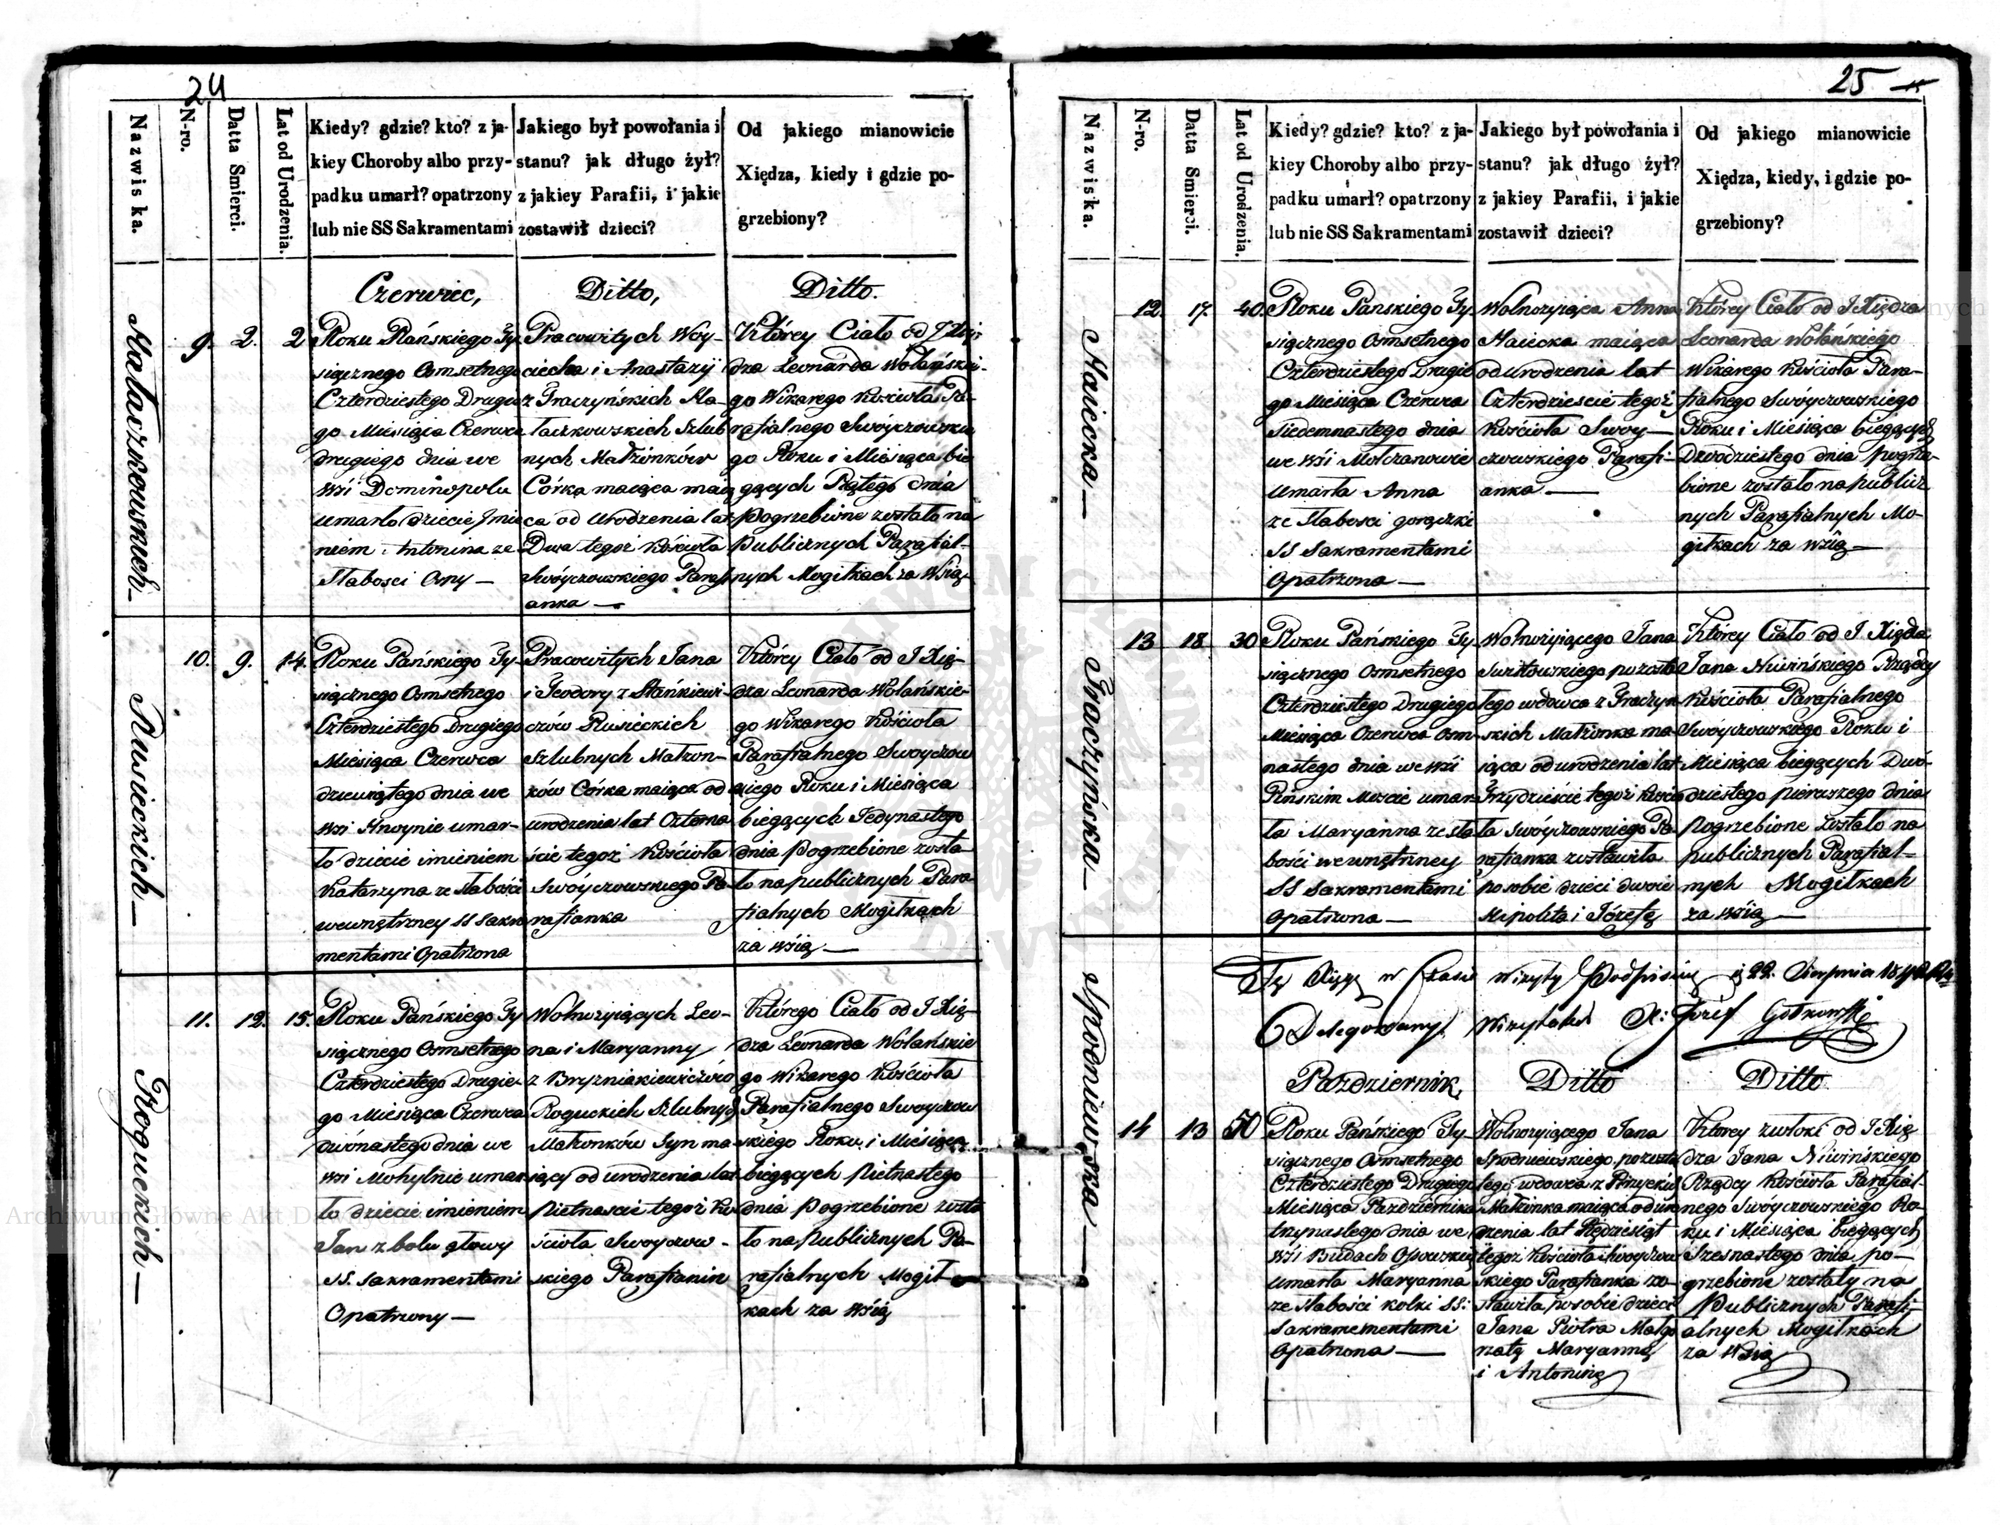 24
Nazwiska.
N-ro.
Data Smierci.
Lat od Urodzenia.
Kiedy? gdzie? kto? z ja-
kiey Choroby albo przy-
padku umarł? opatrzony
lub nie SS Sakramentami
Jakiego był powołania i
stanu? jak długo żył?
z jakiey Parafii, i jakie
zostawił dzieci?
Od jakiego mianowicie
Xiędza, kiedy i gdzie po-
grzebiony?
Czerwiec,
Ditto,
Ditto.
Kałaczkowskich
9.
2.
2
Roku Pańskiego Ty
siącznego Osmsetnego
Czterdziestego Drugie
go Miesiąca Czerwca
drugiego dnia we
wsi Dominopolu
umarło dziecie Imie
niem Antonina ze
Słabosci Ospy
Pracowitych Woy-
ciecha i Anastazyi
z Graczyńskich Ka-
łaczkowskich Szlub
nych Małżonków
Córka maiąca maią
ca od Urodzenia lat
Dwa tegoż Kościoła
Swóyczowskiego Parafi
anka
Którey Ciało od J Xię
dza Leonarda Wolańskie-
go Wikarego Kościoła Pa-
rafialnego Swóyczowskie
go Roku i Miesiąca bie
gących Piątego dnia
Pogrzebione zostało na
Publicznych Parafial-
nych Mogiłkach za Wsią
Rusieckich
10.
9.
14.
Roku Pańskiego Ty-
siącznego Osmsetnego
Czterdziestego Drugiego
Miesiąca Czerwca
dziewiątego dnia we
wsi Hnoynie umar-
ło dziecie imieniem
Katarzyna ze słabości
wewnętrzney SS Sakra
mentami Opatrzona
Pracowitych Jana
i Teodory z Stańkiewi-
czów Rusieckich
Szlubnych Małżon-
ków Córka maiąca od
urodzenia lat Czterna
ście tegoż Kościoła
Swóyczowskiego Pa
rafianka
Którey Ciało od J Xię-
dza Leonarda Wolańskie-
go Wikarego Kościoła
Parafialnego Swoyczow
skiego Roku i Miesiąca
biegących Jedynastego
dnia Pogrzebione zosta
ło na publicznych Para-
fialnych Mogiłkach
za wsią
Roguckich
11.
12.
15.
Roku Pańskiego Ty
siącznego Osmsetnego
Czterdziestego Drugie-
go Miesiąca Czerwca
dwónastego dnia we
wsi Mohylnie umar
ło dziecie imieniem
Jan z bolu głowy
SS. Sakramentami
Opatrzony
Wolnożyiących Leo-
na i Maryanny
z Bryzniakiewiczów
Roguckich Szlubnych
Małżonków Syn ma
iący od urodzenia lat
Pietnaście tegoż Ko
ścioła Swoyczow-
skiego Parafianin
Którego Ciało od J Xię-
dza Leonarda Wolańskie
go Wikarego Kościoła
Parafialnego Swoyczow
skiego Roku i Miesiąca
biegących Pietnastego
dnia Pogrzebione zosta
ło na Publicznych Pa-
rafialnych Mogił-
kach za wsią
25
Nazwiska.
N-ro.
Data Smierci.
Lat od Urodzenia.
Kiedy? gdzie? kto? z ja-
kiey Choroby albo przy-
padku umarł? opatrzony
lub nie SS Sakramentami
Jakiego był powołania i
stanu? jak długo żył?
z jakiey Parafii, i jakie
zostawił dzieci?
Od jakiego mianowicie
Xiędza, kiedy, i gdzie po-
grzebiony?
Haiecka
12.
17.
40.
Roku Pańskiego Ty
siącznego Osmsetnego
Czterdziestego Drugie
go Miesiąca Czerwca
Siedemnastego dnia
we wsi Mołczanowie
Umarła Anna
ze Słabosci gorączki
SS Sakramentami
Opatrzona
Wolnożyiąca Anna
Haiecka maiąca
od urodzenia lat
Czterdzieście tegoż
Kościoła Swoy-
czowskiego Parafi-
anka
Którey Ciało od J Xiędza
Leonarda Wolańskiego
Wikarego Kościoła Para-
fialnego Swóyczowskiego
Roku i Miesiąca biegących
Dwodziestego dnia pogrze-
bione zostało na publicz
nych Parafialnych Mo-
giłkach za wsią
Graczyńska
13
18
30
Roku Pańskiego Ty
siącznego Osmsetnego
Czterdziestego Drugiego
Miesiąca Czerwca Osm
nastego dnia we wsi
Pińskim Moście umar
ła Maryanna ze sła
bości wewnętrzney
SS Sakramentami
Opatrzona
Wolnożyiącego Jana
pozosta
łego wdowca z Graczyn
skich Małżonka ma
iąca od urodzenia lat
Trzydzieście tegoż Kościo
ła Swóyczowskiego Pa
rafianka zostawiła
po sobie dzieci dwoie
Hipolita i Józefę
Którey Ciało od J. Xiędza
Jana Niwińskiego Rządcy
Kościoła Parafialnego
Swóyczowskiego Roku i
Miesiąca biegących Dwó-
dziestego pierwszego dnia
Pogrzebione zostało na
publicznych Parafial-
nych Mogiłkach
za wsią
Tę Xięgę w Czasie Wizyty Podpisuię 22. Sierpnia 1842
Delegowany Wizytator X: Józef
Październik,
Ditto
Ditto
Spodniewska
14
13
50
Roku Pańskiego Ty
siącznego Osmsetnego
Czterdziestego Drugiego
Miesiąca Października
trzynastego dnia we
wsi Budach Ossowskich
umarła Maryanna
ze słabości kolki SS:
Sakramementami
Opatrzona
Wolnożyiącego Jana
Spodniewskiego, pozosta
łego wdowca z
Małżonka maiąca od uro
dzenia lat Pięćdziesiąt
tegoż Kościoła Swoyczow
skiego Parafianka zo-
stawiła po sobie dzieci
Jana Piotra Małgo
rzatę Maryannę
i Antoninę
Którey zwłoki od J Xię
dza Jana Niwińskiego
Rządcy Kościoła Parafial-
nego Swóyczowskiego Ro-
ku i Miesiąca biegących
Szesnastego dnia po-
grzebione zostały na
Publicznych Parafi-
alnych Mogiłkach
za Wsią
Archiwum Główne Akt Dawnych